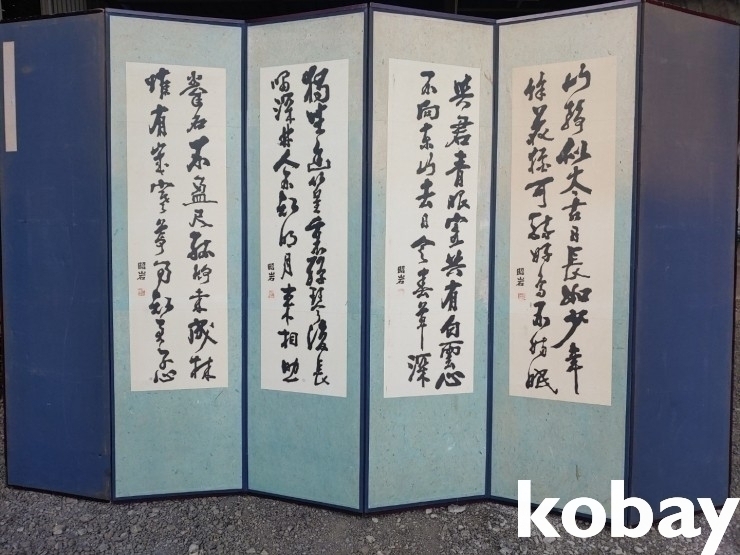 山靜似太古日長如少年
餘花猶可醉好鳥不妨眠
昭岩
與君青眼客共有白雲心
不向東山去日令春草深
昭岩
獨坐幽篁裏彈琴復長
嘯深林人不知明月來相照
昭岩
拳石不盈尺孤竹未成林
惟有歲寒節乃知君子心
昭岩
kobay